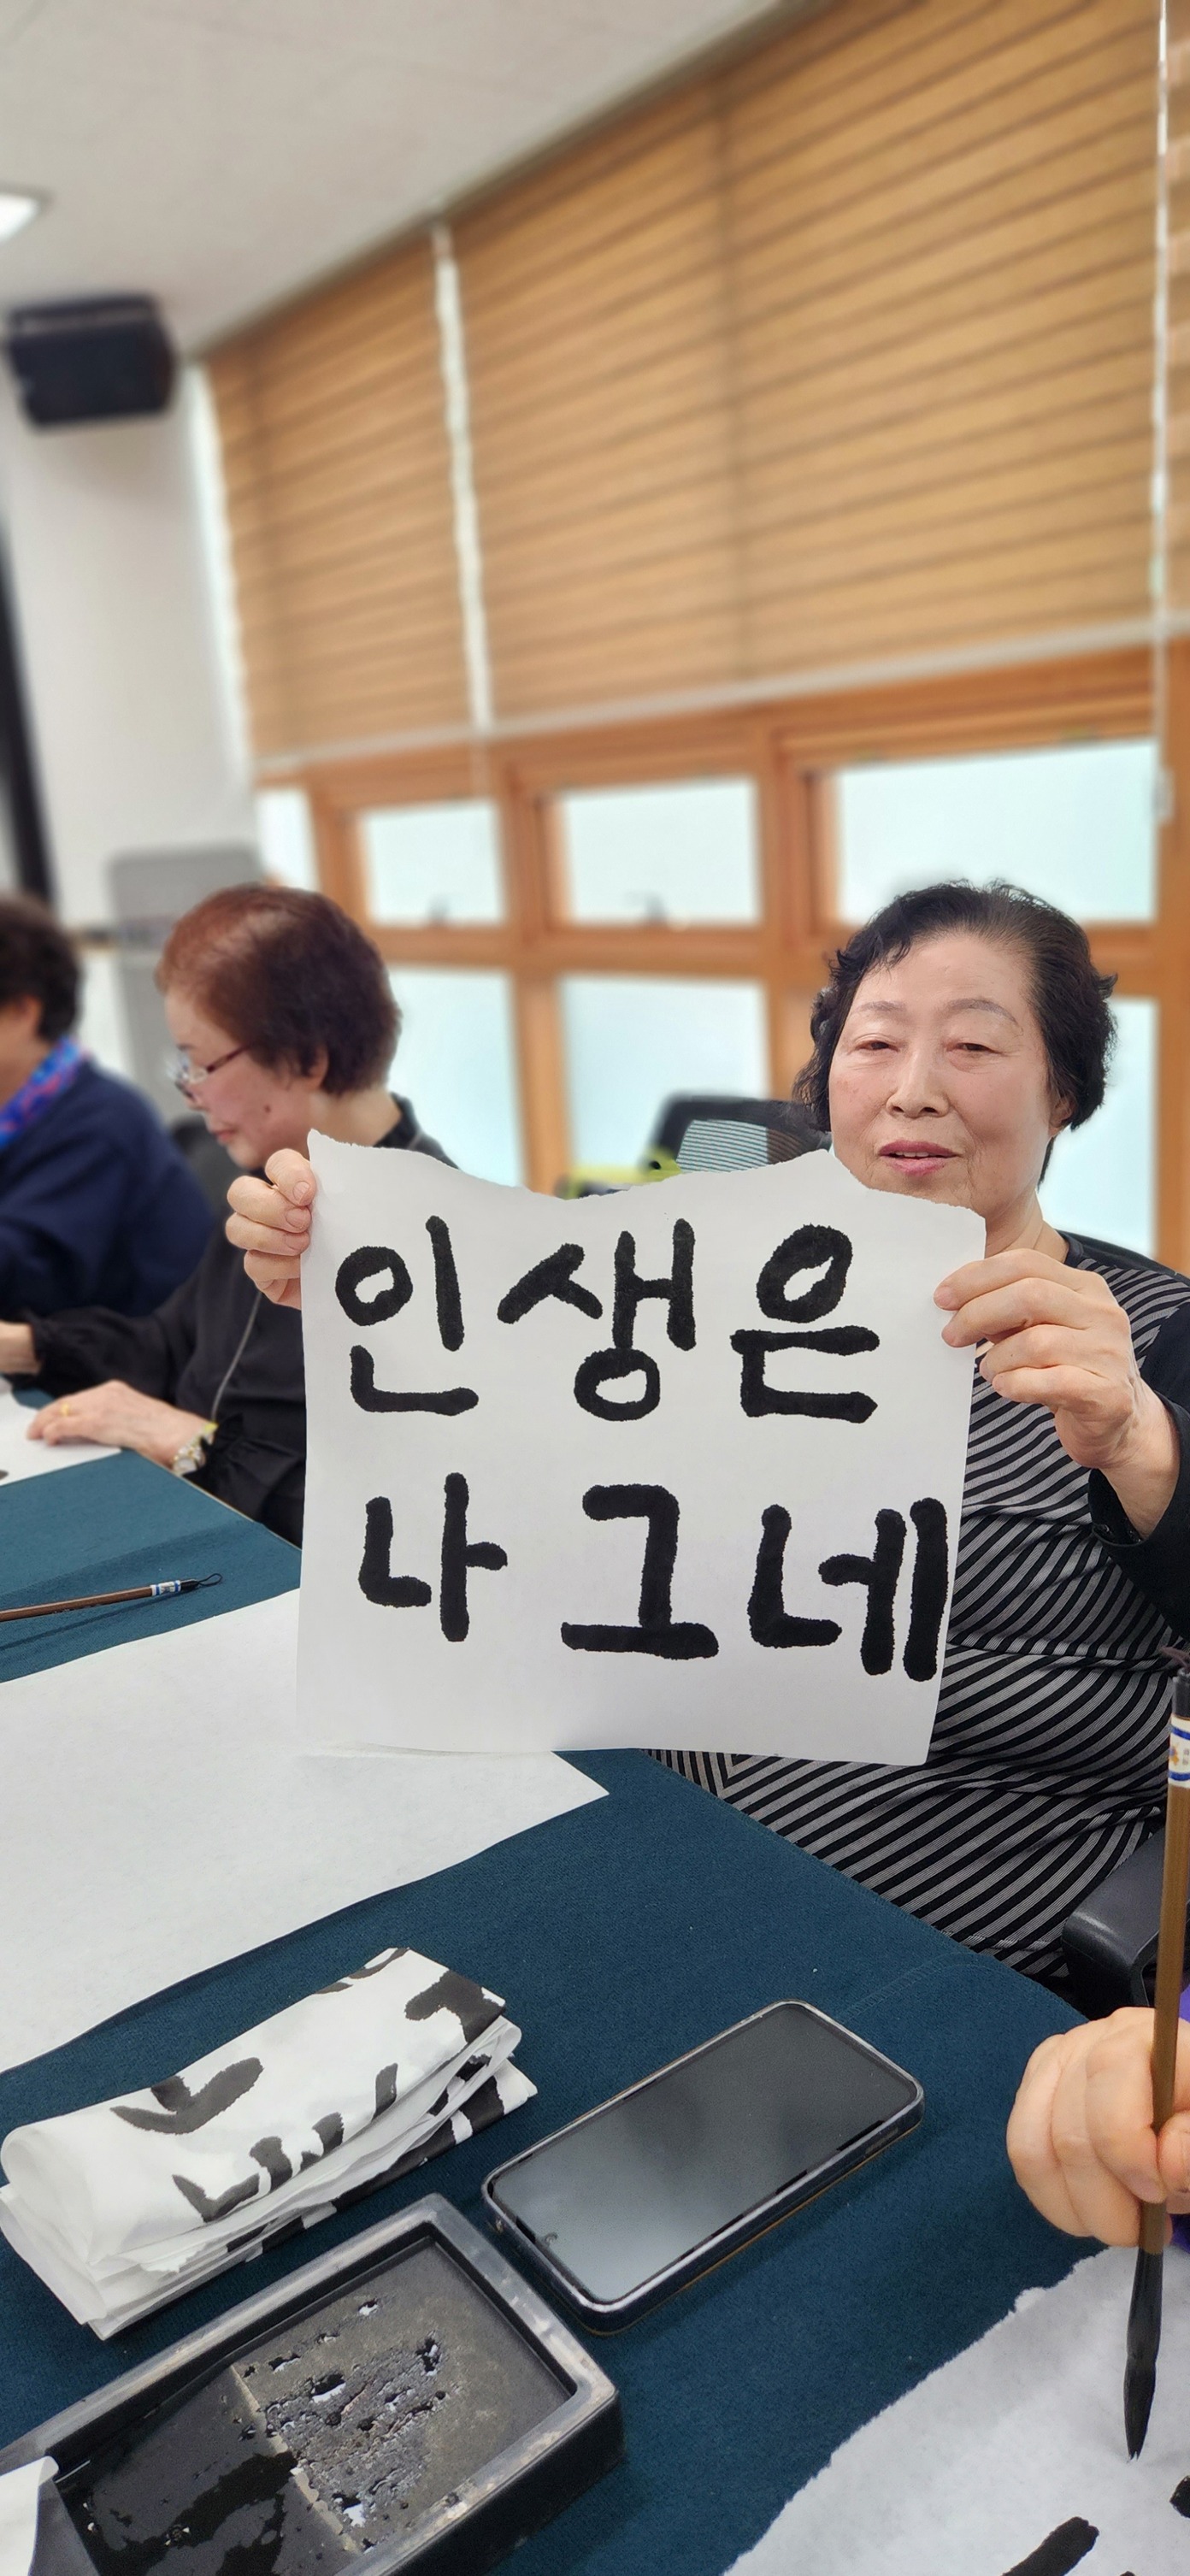 인생은
나그네